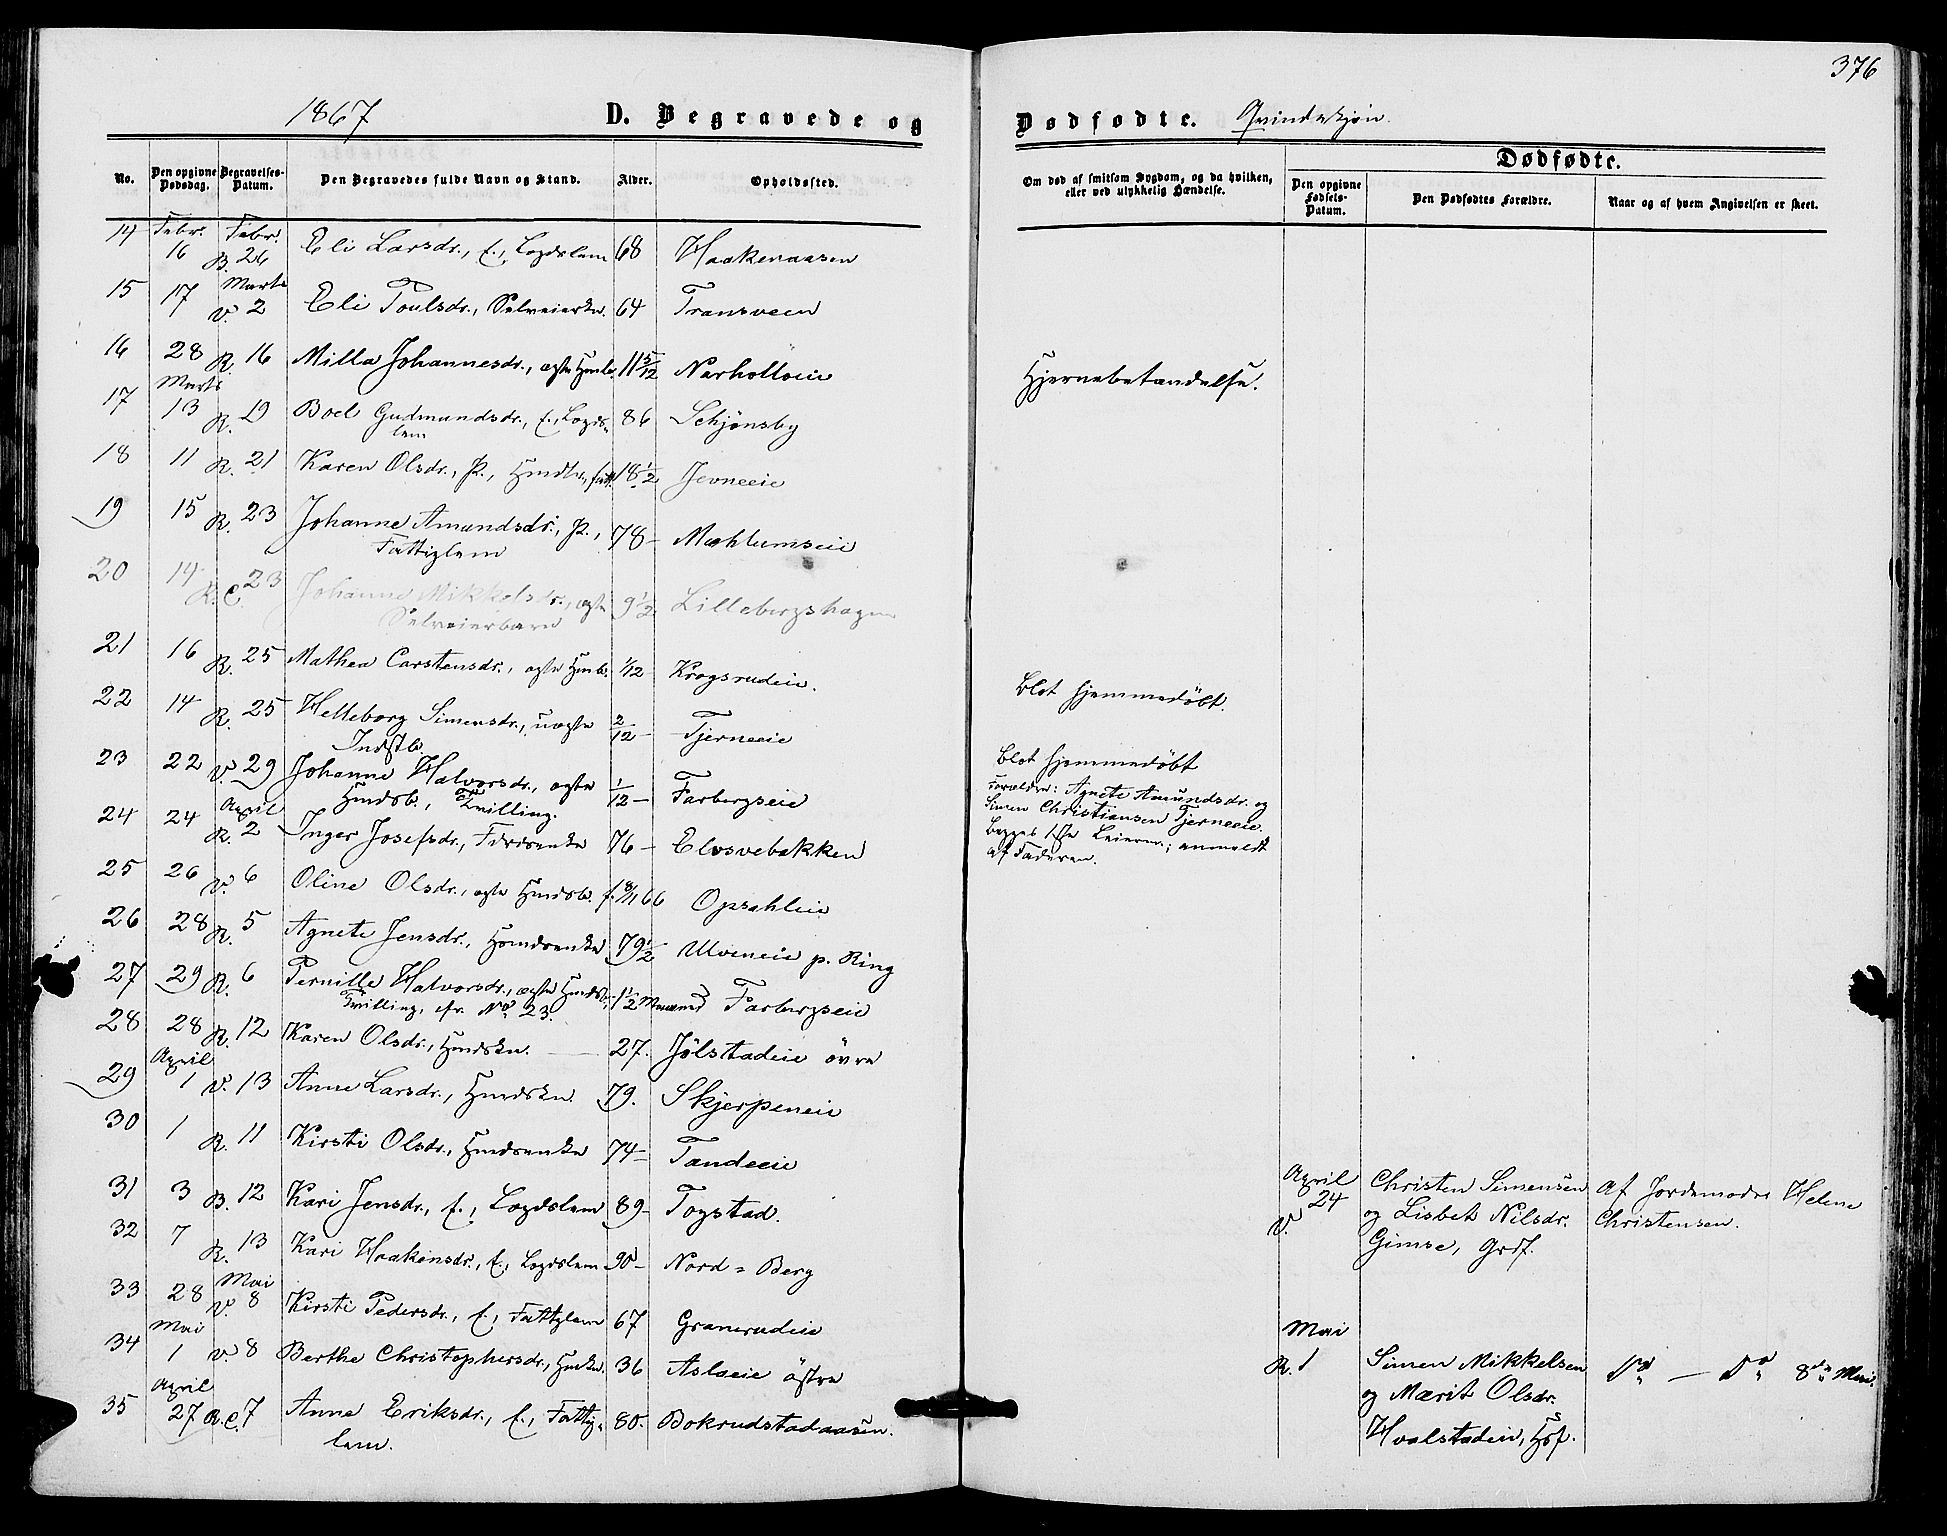 376
1867 D. Begravede og Dødfødte. Qvindekjøn.
No. Den opgivne Dødsdag. Begravelses-Datum. Den Begravedes fulde Navn og Stand. Alder. Opholdssted.
Om død af smitsom Sygdom, og da hvilken, eller ved ulykkelig Hændelse.
Dødfødte.
Den opgivne Fødsels-Datum. Den Dødfødtes Forældre. Naar og af hvem Angivelsen er skeet.
14 Febr. 16 Febr. B. 26 Eli Larsdr., f., Lægdslem 68 Haakenaasen
15 17 Marts V. 2 Eli Poulsdr., Selveierkn. 64 Transveen
16 28 R. 16 Milla Johannesdr., ægte Hmb. 11 5/12 Narholloeie Hjernebetændelse.
17 Marts 13 R. 19 Boel Gudmundsdr., f., Lægds-
lem 86 Schjønsby
18 11 R. 21 Karen Olsdr., P., Hmdtr., fatt. 18 1/2 Jevneeie
19 15 R. 23 Johanne Amundsdr., P.,
Fattiglem 78 – Mæhlumseie
20 14 R. C. 23 Johanne Mikkelsdr., ægte
Selveierbarn 9 1/2 Lillebergshagen
21 16 R. 25 Mathea Carstensdr., ægte Hmb. 1/12 Krogsrudeie.
22 14 R. 25 Helleborg Simensdr., uægte
Indstb. 2/12 – Tjerneeie Blot hjemmedøbt.
23 22 V. 29 Johanne Halvorsdr., ægte
Hmdsb., Tvilling. 1/12 – Farbergseie Blot hjemmedøbt
Forældre: Agnete Amundsdr. og
Simen Christiansen Tjerneeie.
Begges 1ste Leierm.; anmeldt
af Faderen.
24 24 April R. 2 Inger Josefsdr., Fdrdsenke 76 – Elvsvebakken
25 26 V. 6 Oline Olsdr., ægte Hmdsb. f. 8/11 66 Opsahleie
26 28 R. 5 Agnete Jensdr., Hmdsenke 79 1/2 Ulveneie p. Ring
27 29 R. 6 Pernille Halvorsdr., ægte Hmdsb.,
Tvilling, cfr. No 23. 1 1/2 Maaned Farbergseie
28 28 R. 12 Karen Olsdr., Hmdskn. 27. Jølstadeie övre
29 April 1 V. 13 Anne Larsdr., Hmdskn. 79. Skjerpeneie
30 1 R. 11 Kirsti Olsdr., Hmdsenke 74 – Tandeeie
31 3 B. 12 Kari Jensdr., f., Lægdslem 89 – Togstad.
32 7 R. 13 Kari Haakensdr., f., Lægdslem 90 – Nord = Berg
33 28 Mai V. 8 Kirsti Pedersdr., f., Fattiglem 67 Granerudeie
34 Mai 1 V. 8 Berthe Christophersdr., Hmkn. 36 Aslaeie östre
35 April 27 R. C. 7 Anne Eriksdr., f., Fattig-
lem. 80. Bokrudstadaasen.
April 24 V. Christen Simensen
og Lisbet Nilsdr.
Gimse, Grdf. Af Jordemoder Helene
Christensen.
Mai R. 1 Simen Mikkelsen
og Marit Olsdr.
Hvalstadeie, Hsf. Do — Do 8de Mai.